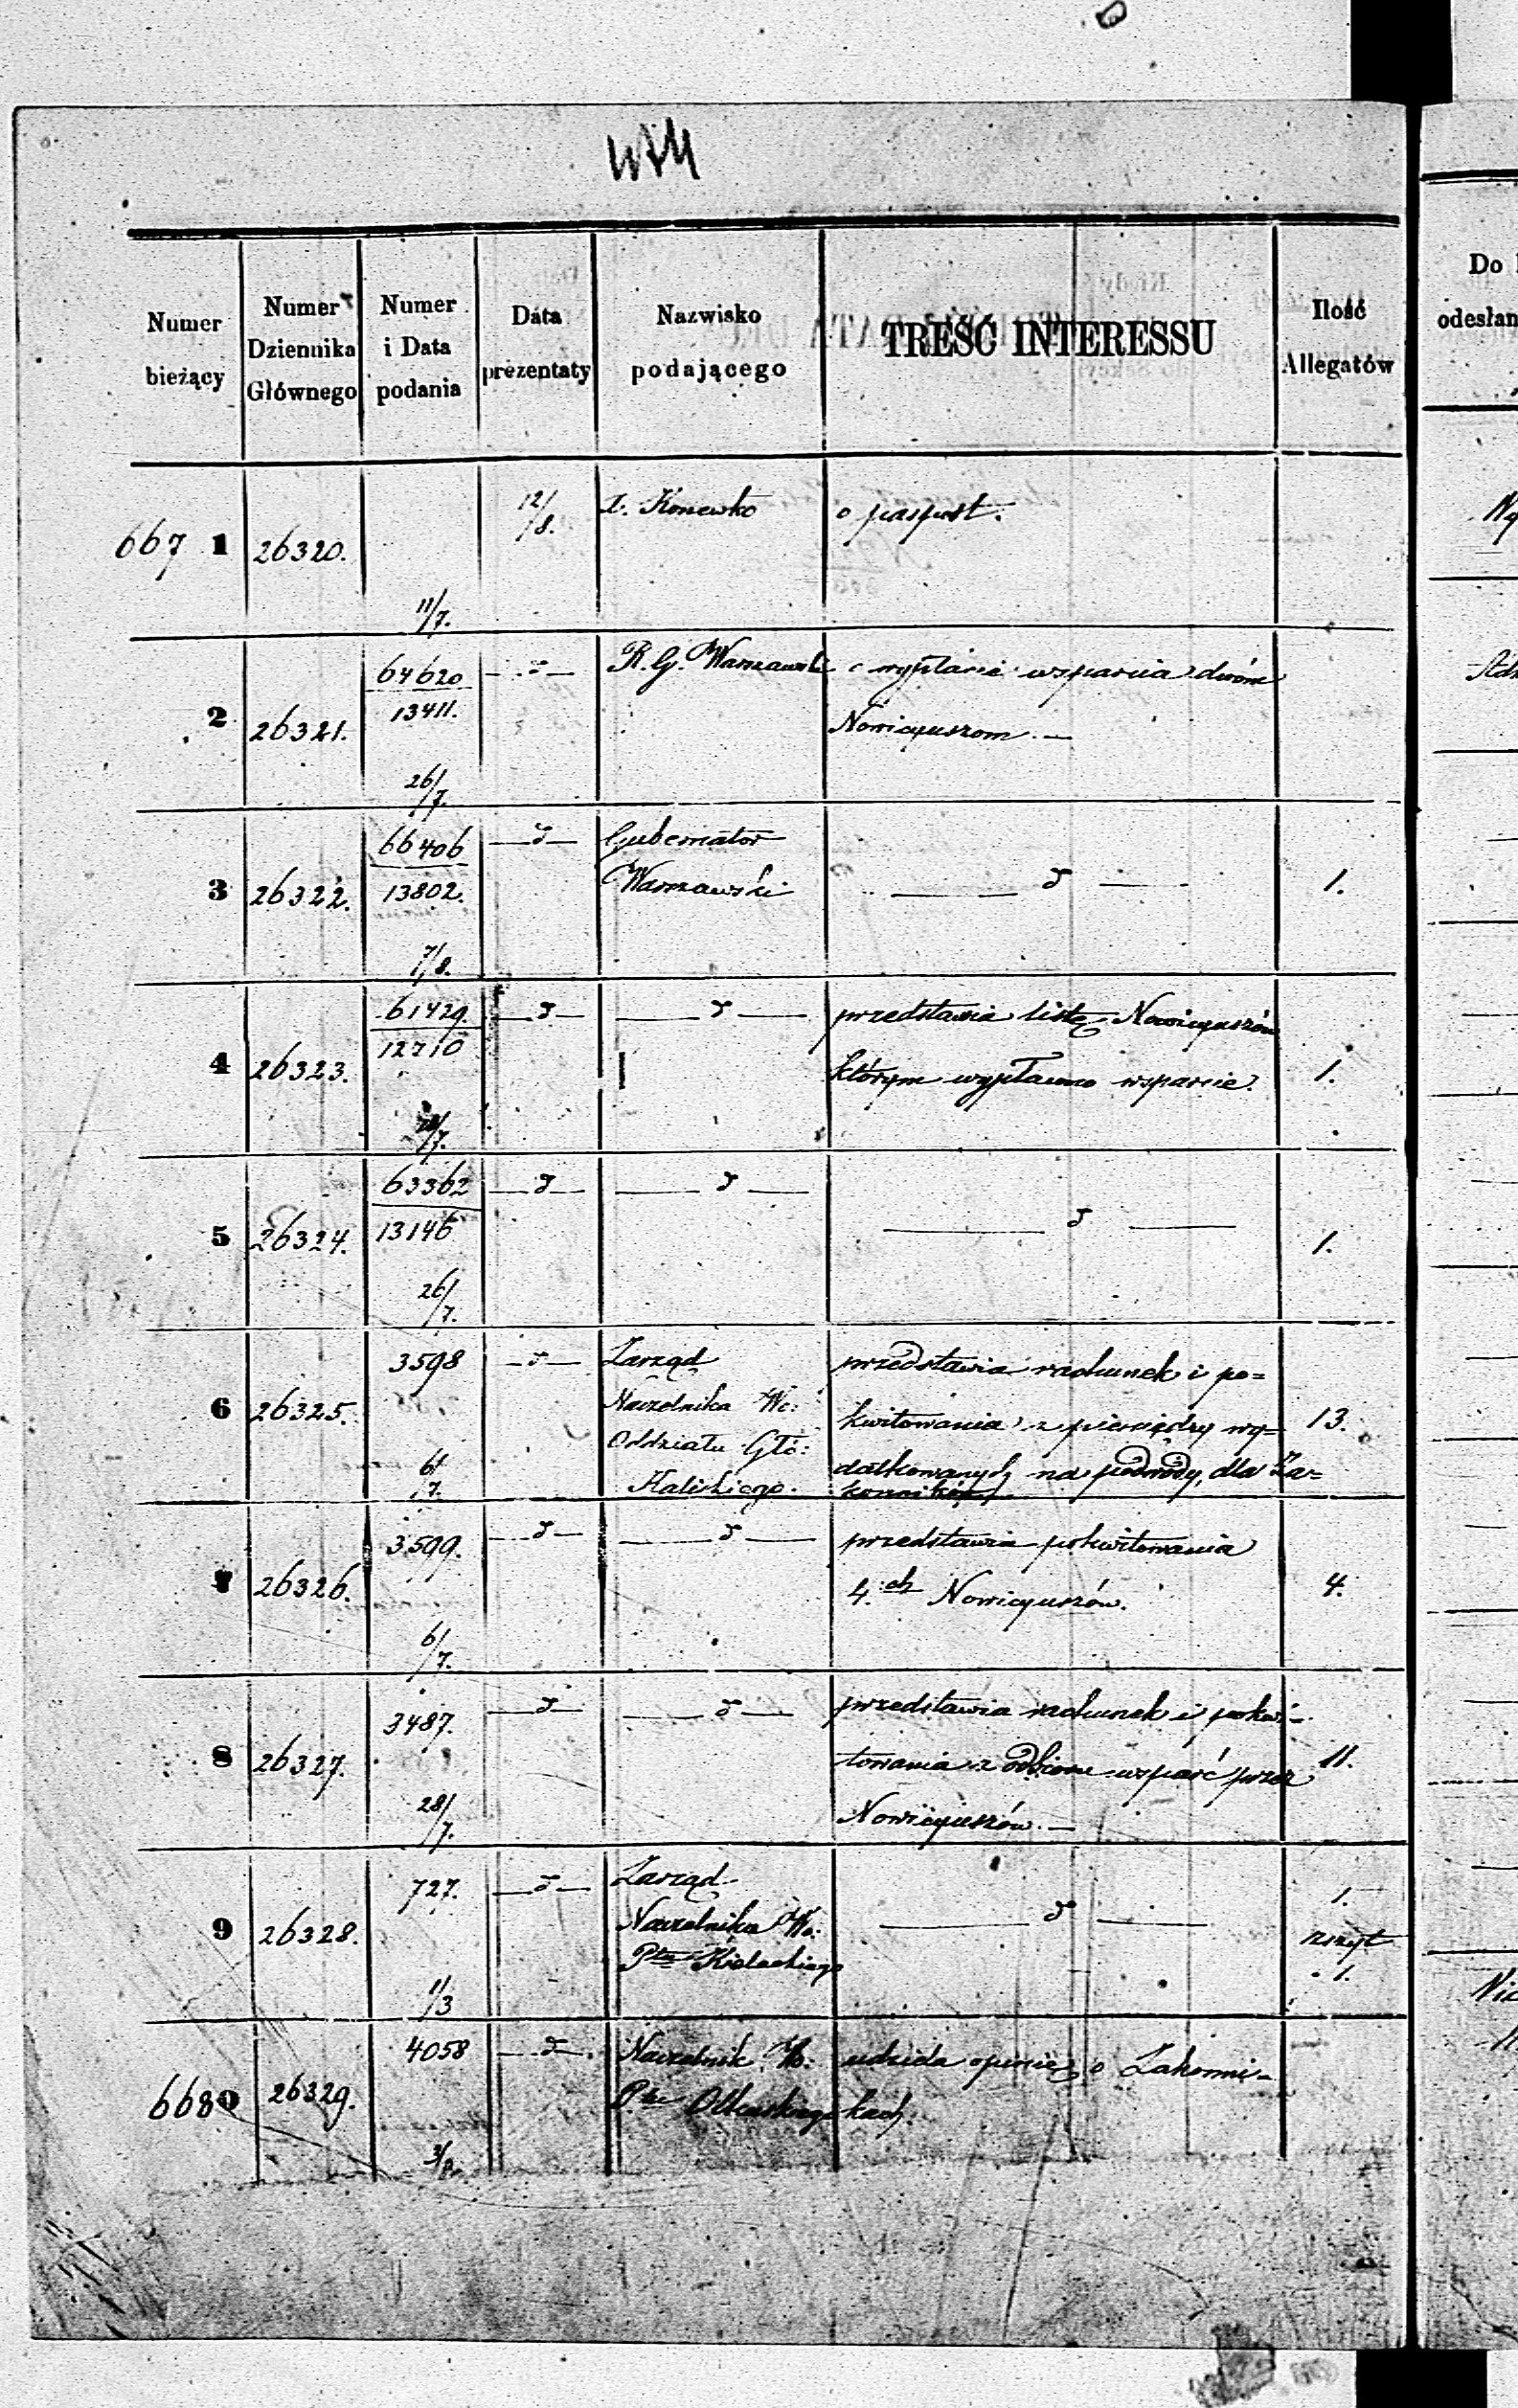 Numer bieżący
Numer Dziennika Głównego
Numer i Data podania
Data prezentaty
Nazwisko podającego
TREŚĆ INTERESSU
Ilość Allegatów
Do
odesłan
667 1 26320. 11/7. 12/8. X. Konewko o paszport.
2 26321. 64620 13411. 26/7. d R. G. Warszawski o wypłacie wsparcia dwóm
Nowicyuszom.
3 26322. 66406 13802. 7/8. d Gubernator
Warszawski d 1.
4 26323. 61429. 12710 /7. d d przedstawia listę Nowicyuszów
którym wypłacono wsparcie. 1.
5 26324. 63362 13146 26/7. d d d 1.
6 26325. 3598 6/7. d Zarząd przedstawia rachunek i po=
Naczelnika Wo: kwitowania z pieniędzy wy= 13.
Oddziału Głó: datkowanych na podwody, dla Za=
Kaliskiego. konników
7 26326. 3599. 6/7. d d przedstawia pokwitowania
4.ch Nowicyuszów. 4.
8 26327. 3487. 28/7. d d przedstawia rachunek i pokwi-
towania z odbioru wsparć przez 11.
Nowicyuszów.
9 26328. 727. 1/3 d Zarząd
Naczelnika Wo: d 1.
Ptu Kieleckiego zszyt
1.
668 0 26329. 4058 3/8. d Naczelnik Wo: udziela opinię o Zakonni-
Ptu Olkuskiego kach.